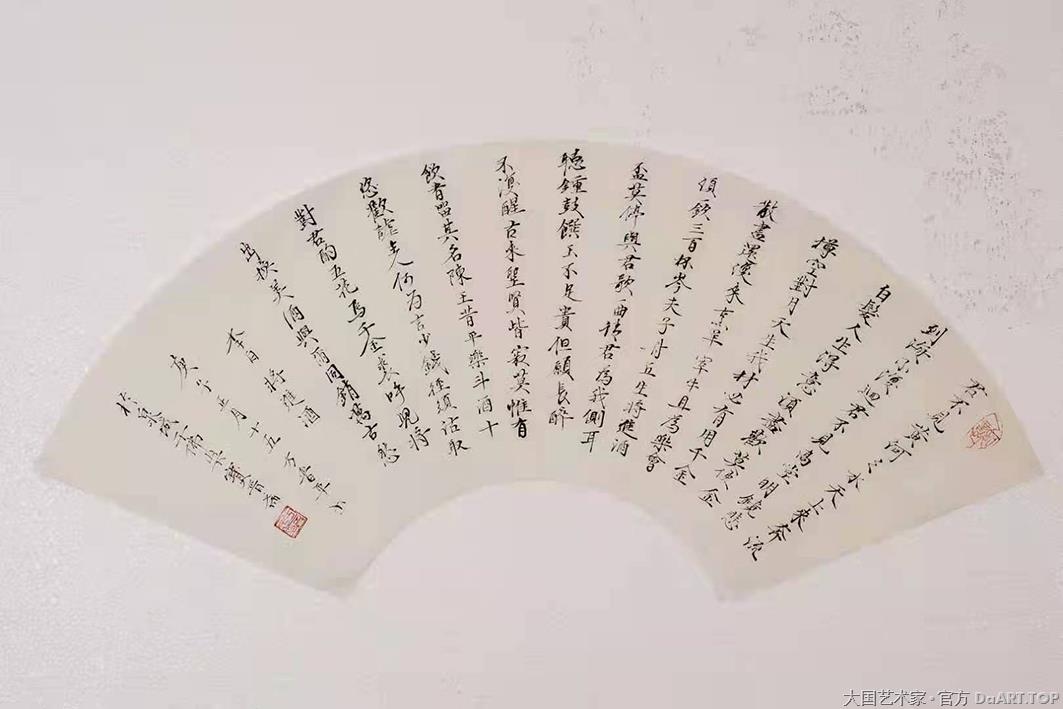 君不見黃河之水天上來奔流
到海不復迴君不見高堂明鏡悲
白髮人生得意須盡歡莫使金
樽空對月天生我材必有用千金
散盡還復來烹羊宰牛且為樂會
須飲三百杯岑夫子丹丘生將進酒
盃莫停與君歌一曲請君為我側耳
聽鍾鼓饌玉不足貴但願長醉
不復醒古來聖賢皆寂莫惟有
飲者留其名陳王昔平樂斗酒十
恣歡謔主人何為言少錢徑須沽取
對君酌五花馬千金裘呼兒將
出換美酒與爾同銷萬古愁
李白將進酒
庚子正月十五
大国艺术家·官方 DaART.TOP